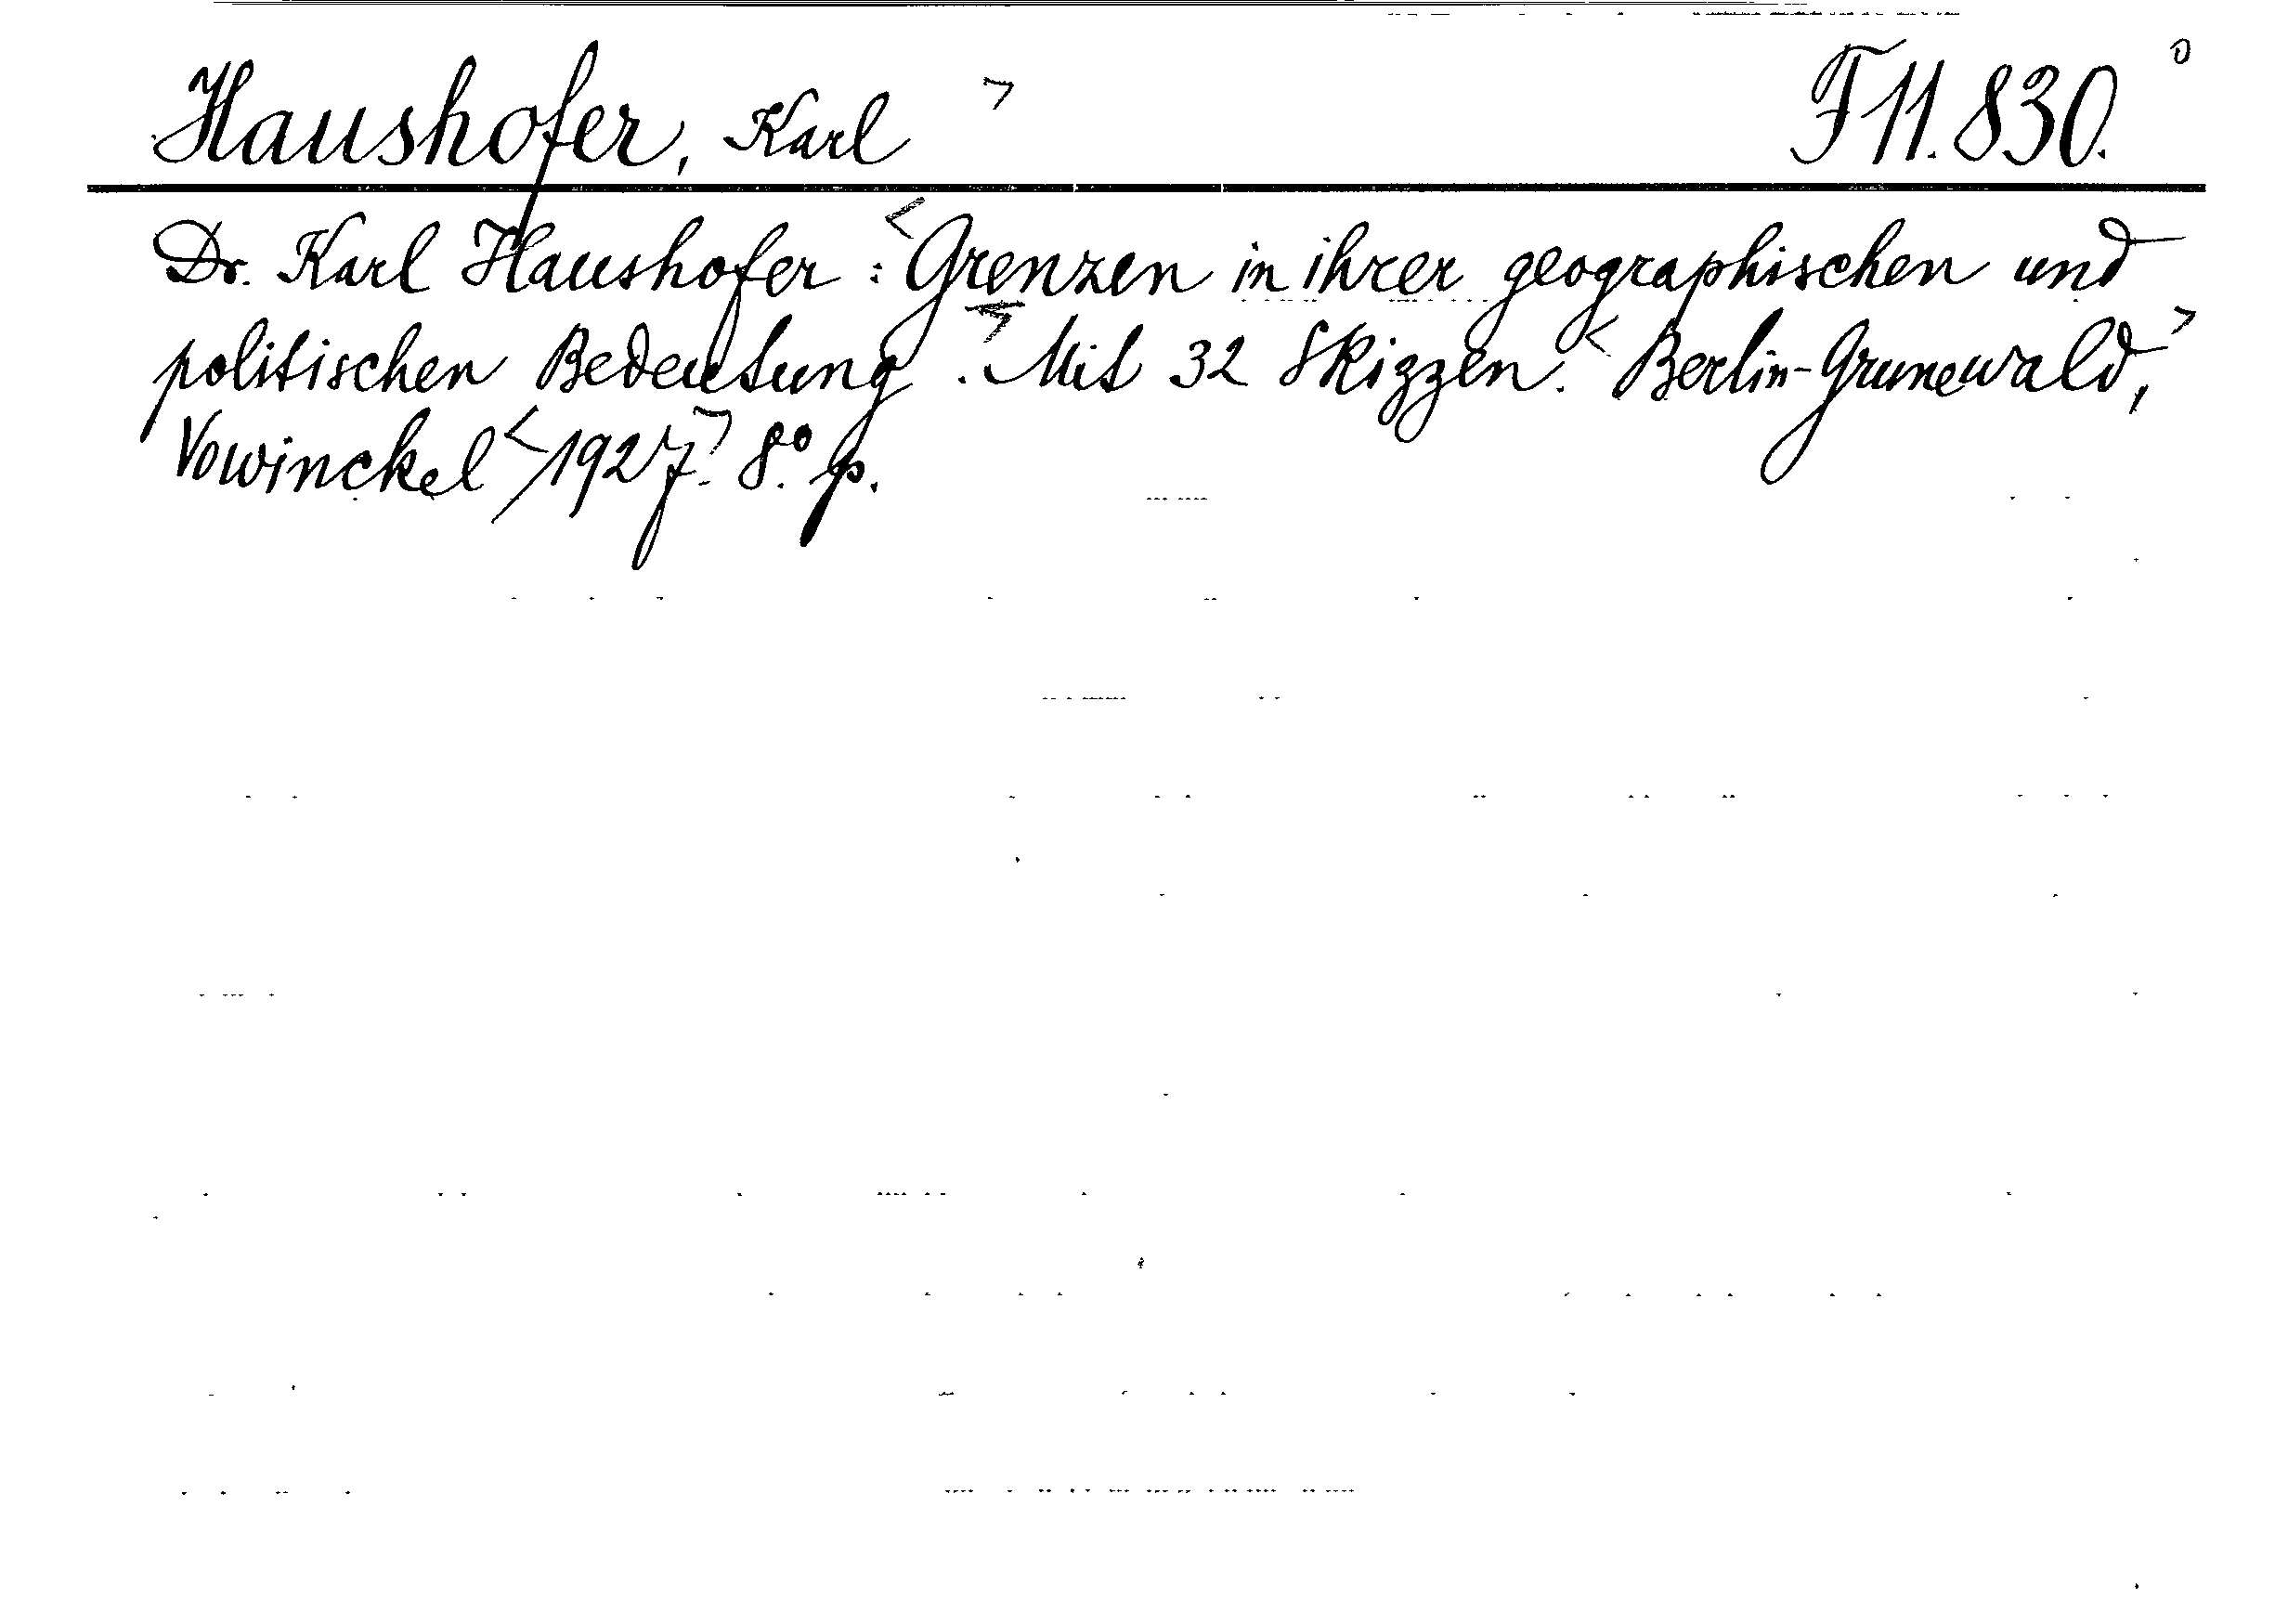 Haushofer, Karl > F 11.830. 0
Dr. Karl Haushofer : <Grenzen in ihrer geographischen und
politischen Bedeutung>. Mit 32 Skizzen. <Berlin-Grunewald,>
Vowinckel <1927.> 8.° p.